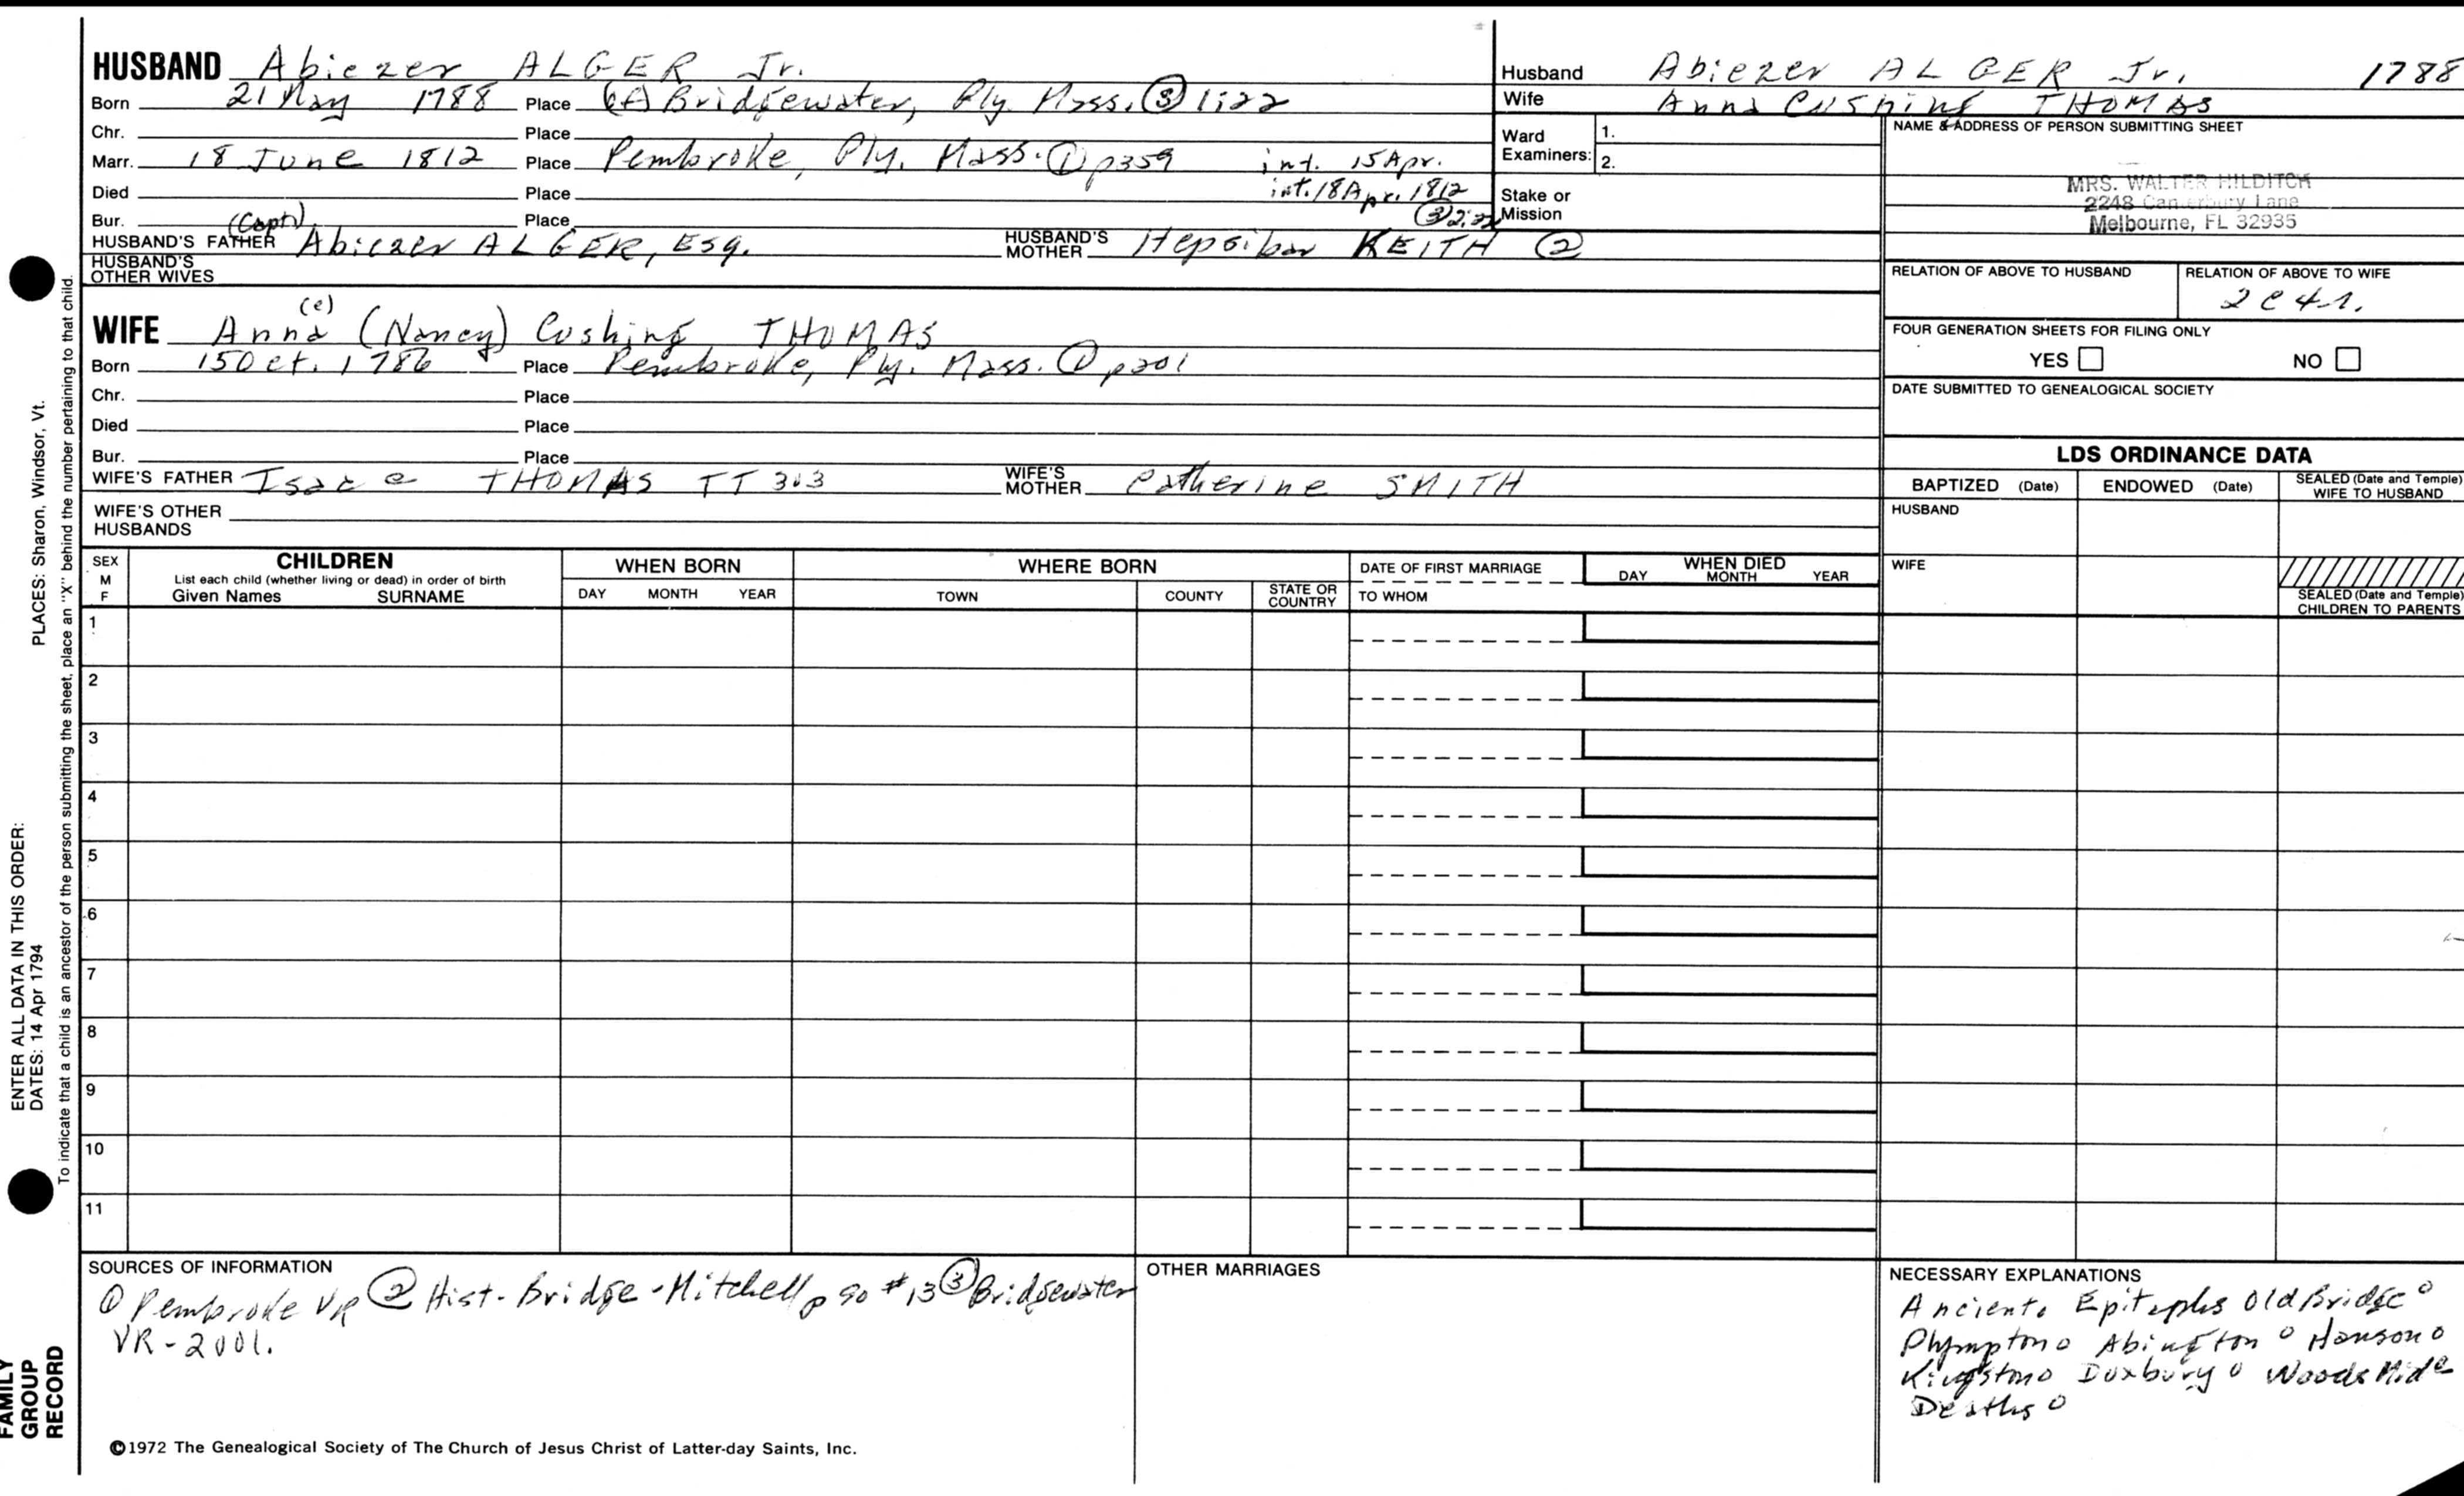 HUSBAND Abiezer ALGER Jr.
Born 21 May 1788 Place Bridgewater, Ply. Mass. ③ 1:22
Chr. Place
Marr. 18 June 1812 Place Pembroke, Ply. Mass. ① p359 int. 15 Apr.
int. 18 Apr. 1812
Died Place
Bur. Place ③ 2:22
(Capt)
HUSBAND'S FATHER Abiezer ALGER, Esq. HUSBAND'S MOTHER Hepsibar KEITH ②
HUSBAND'S OTHER WIVES
(e)
WIFE Anna (Nancy) Cushing THOMAS
Born 15 Oct. 1786 Place Pembroke, Ply. Mass. ① p201
Chr. Place
Died Place
Bur. Place
WIFE'S FATHER Isaac THOMAS TT 303 WIFE'S MOTHER Catherine SMITH
WIFE'S OTHER HUSBANDS
Husband Abiezer ALGER Jr. 1788
Wife Anna Cushing THOMAS
Ward Examiners: 1.
2.
Stake or Mission
NAME & ADDRESS OF PERSON SUBMITTING SHEET
MRS. WALTER HILDITCH
2248 Canterbury Lane
Melbourne, FL 32935
RELATION OF ABOVE TO HUSBAND RELATION OF ABOVE TO WIFE
2C4r.
FOUR GENERATION SHEETS FOR FILING ONLY
YES NO
DATE SUBMITTED TO GENEALOGICAL SOCIETY
LDS ORDINANCE DATA
BAPTIZED (Date) ENDOWED (Date) SEALED (Date and Temple) WIFE TO HUSBAND
HUSBAND
WIFE
SEALED (Date and Temple) CHILDREN TO PARENTS
SEX M F
CHILDREN
List each child (whether living or dead) in order of birth
Given Names SURNAME
WHEN BORN
DAY MONTH YEAR
WHERE BORN
TOWN COUNTY STATE OR COUNTRY
DATE OF FIRST MARRIAGE
TO WHOM
WHEN DIED
DAY MONTH YEAR
1
2
3
4
5
6
7
8
9
10
11
SOURCES OF INFORMATION
① Pembroke VR ② Hist. Bridge - Mitchell p 90 #13 ③ Bridgewater
VR - 2001.
OTHER MARRIAGES
NECESSARY EXPLANATIONS
Ancient o Epitaphs Old Bridge o
Plympton o Abington o Hanson o
Kingston o Duxbury o Woods
Deaths o
©1972 The Genealogical Society of The Church of Jesus Christ of Latter-day Saints, Inc.
PLACES: Sharon, Windsor, Vt.
ENTER ALL DATA IN THIS ORDER:
DATES: 14 Apr 1794
To indicate that a child is an ancestor of the person submitting the sheet, place an "X" behind the number pertaining to that child.
FAMILY
GROUP
RECORD